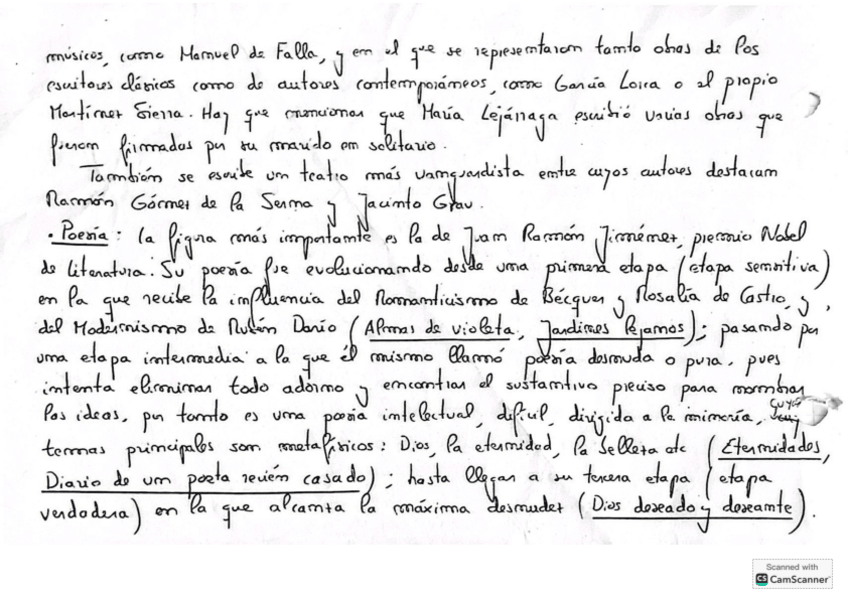 músicos, como Manuel de Falla, y en el que se representaron tanto obras de los
escritores clásicos como de autores contemporáneos, como García Lorca o el propio
Martínez Sierra. Hay que mencionar que María Lejánaga escribió varias obras que
fueron firmadas por su marido en solitario.
También se escribe un teatro más vanguardista entre cuyos autores destacan
Ramón Gómez de la Serna y Jacinto Grau.
· Poesía: la figura más importante es la de Juan Ramón Jiménez, premio Nobel
de literatura. Su poesía fue evolucionando desde una primera etapa (etapa sensitiva)
en la que recibe la influencia del Romanticismo de Bécquer y Rosalía de Castro, y
del Modernismo de Rubén Darío (Almas de violeta, Jardines lejanos); pasando por
una etapa intermedia a la que él mismo llamó poesía desnuda o pura, pues
intenta eliminar todo adorno y encontrar el sustantivo preciso para nombrar
las ideas, por tanto es una poesía intelectual, difícil, dirigida a la minoría, cuyos
temas principales son metafísicos: Dios, la eternidad, la belleza etc (Eternidades,
Diario de un poeta recién casado); hasta llegar a su tercera etapa (etapa
verdadera) en la que alcanza la máxima desnudez (Dios deseado y deseante).
Scanned with
CS CamScanner